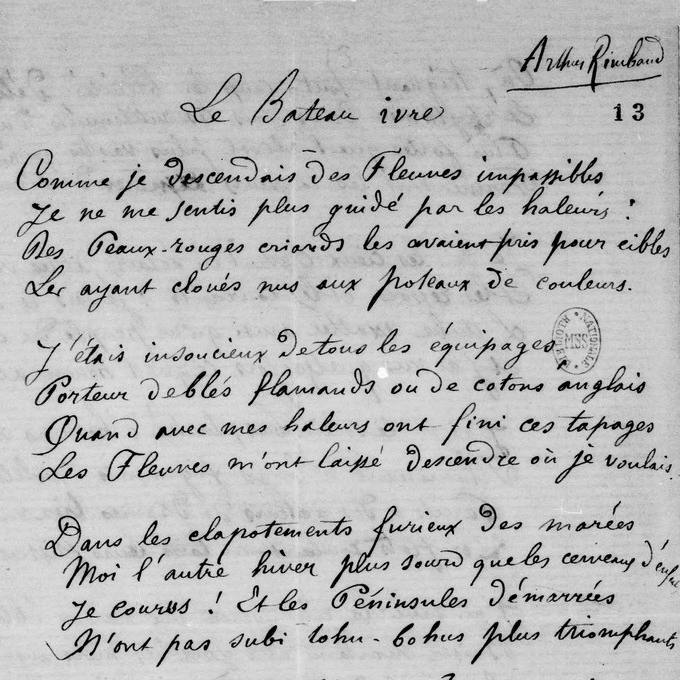 Arthur Rimbaud
13
Le Bateau ivre
Comme je descendais des Fleuves impassibles
Je ne me sentis plus guidé par les haleurs :
Des Peaux-rouges criards les avaient pris pour cibles
Les ayant cloués nus aux poteaux de couleurs.
J'étais insoucieux de tous les équipages,
Porteur de blés flamands ou de cotons anglais
Quand avec mes haleurs ont fini ces tapages
Les Fleuves m'ont laissé descendre où je voulais.
Dans les clapotements furieux des marées
Moi l'autre hiver plus sourd que les cerveaux d'enfants
Je courus ! Et les Péninsules démarrées
N'ont pas subi tohu-bohus plus triomphants
BIBLIOTH. NATIONALE
MSS